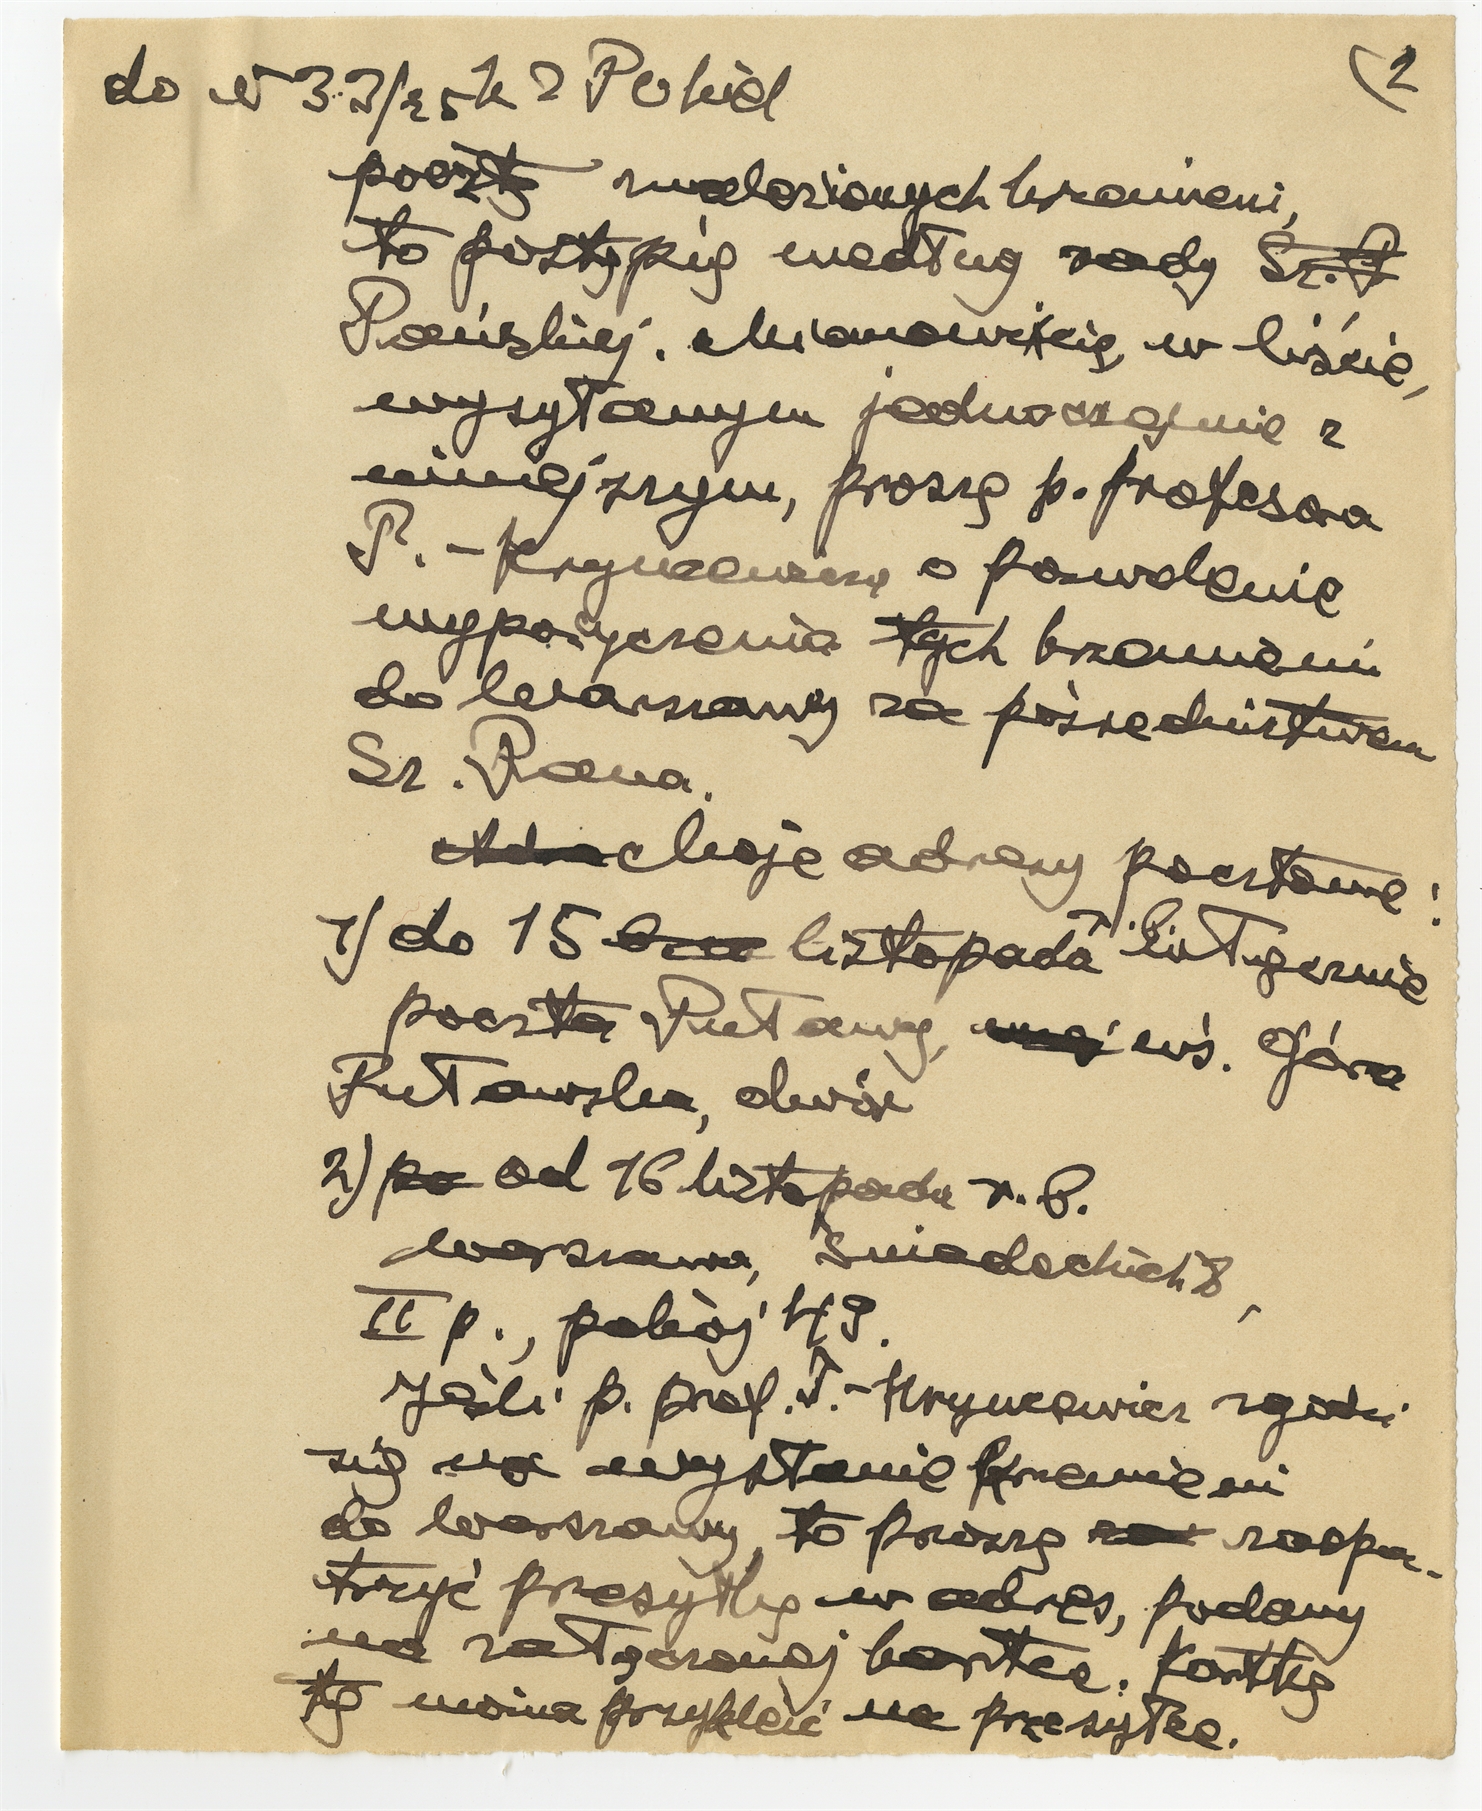 do N 33/25 k 2 Pokiel (2
pocztą znalezionych krzemieni,
to postąpię według rady Sz. P
Pańskiej. Mianowicie, w liście,
wysyłanym jednocześnie z
niniejszym, proszę p. profesora
T.-Hryncewicza o pozwolenie
wypożyczenia tych krzemieni
do Warszawy za pośrednictwem
Sz. Pana.
Moje adresy pocztowe:
1) do 15 listopada r. b. włącznie
poczta Puławy, wś. Góra
Puławska, dwór
2) po od 16 listopada r. b.
Warszawa, Śniadeckich 8,
II p., pokój 49.
Jeśli p. prof. T.-Hryncewicz zgodzi
się na wysłanie krzemieni
do Warszawy, to proszę zaopa-
trzyć przesyłkę w adres, podany
na załączonej kartce. Kartkę
tę można przykleić na przesyłce.